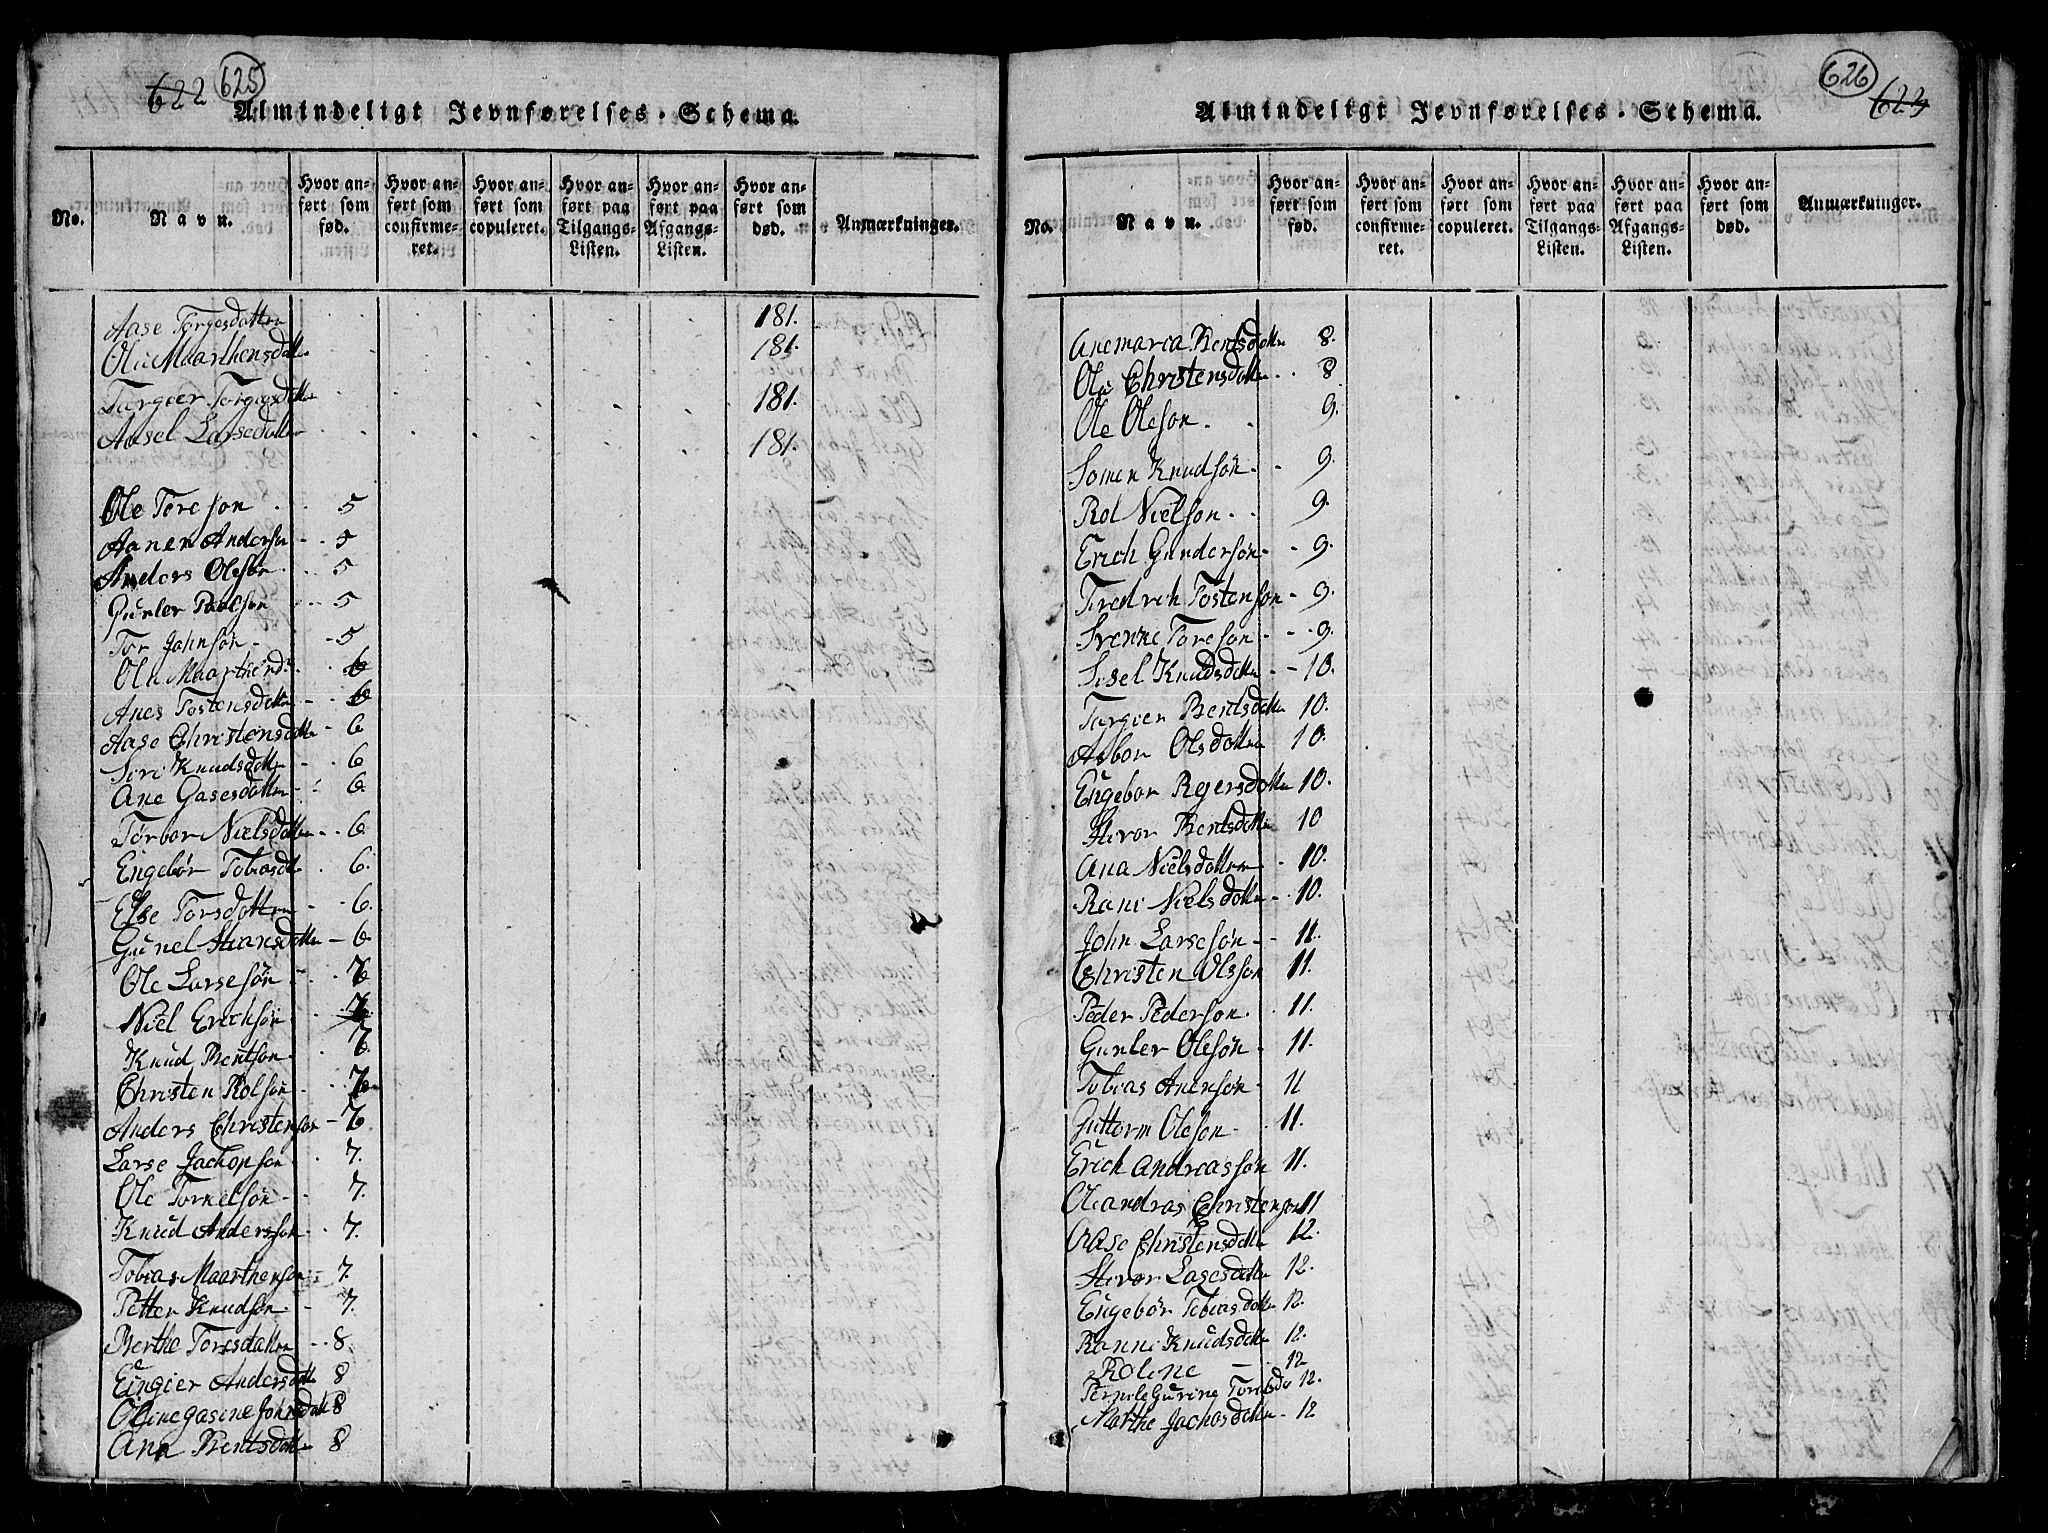 622 625
Almindeligt Jevnførelses-Schema.
No. Navn. Hvor anført som fød. Hvor anført som confirmeret. Hvor anført som copuleret. Hvor anført paa Tilgangs-Listen. Hvor anført paa Afgangs-Listen. Hvor anført som død. Anmærkninger.
Aase Torgesdatten 181.
Ole Maarthensdatt 181.
Targier Torgiesdatt 181.
Aasel Larsedatten 181.
Ole Tereson 5
Aanen Anderson 5
Anders Olesøn 5
Gunler Paalson 5
Tor Johnsøn 5
Ole Maarthend: 6
Anes Tostensdatten 6
Aase Christensdatten 6
Siri Knudsdatten 6
Ane Gasesdatten 6.
Tørbor Nielsdatten 6
Engebør Tobiasdt 6.
Else Torsdatten 6.
Gunel Stiansdatten 6
Ole Larsesøn 7
Niel Ericksøn 7
Knud Bentson 7.
Christen Rolson 7
Anders Christenson 7
Larse Jachopsøn 7.
Ole Tornelsøn 7.
Knud Andersson 7.
Tobias Maarthenson 7.
Petter Knudson 7.
Berthe Toresdatten 8.
Eingier Andersdatt 8
Olinegasine Johnsdatt 8
Ana Bentsdatten 8
626 623
Almindeligt Jevnførelses-Schema.
No. Navn. Hvor anført som fød. Hvor anført som confirmeret. Hvor anført som copuleret. Hvor anført paa Tilgangs-Listen. Hvor anført paa Afgangs-Listen. Hvor anført som død. Anmærkninger.
Anemarea Bentsdatten 8.
Ole Christensdatten 8
Ole Oleson 9.
Somen Knudsøn 9.
Rol Nielsøn 9.
Erich Gundersøn 9.
Fredrich Tostenson 9.
Svenne Toreson 9.
Sisel Knudsdatten 10.
Targier Bentsdatten 10.
Asbor Olsdatten 10.
Engebor Rejersdatten 10.
Stivor Bentsdatten 10
Ana Nielsdatten 10.
Rani Nielsdatten 10.
John Larsesøn 11.
Christen Olsson 11.
Peder Pederson 11.
Gunler Olesøn 11.
Tobias Anensøn 11
Guttorm Oleson 11.
Erich Andreassøn 11.
Oleandras Christenson 11
Aase Christensdatten 12.
Stivor Lasesdatten 12.
Engebør Tobiasdatten 12.
Ranni Knudsdatten 12.
Roline 12
Pernilegurine Torelsda 12.
Marthe Jachosdatten 12